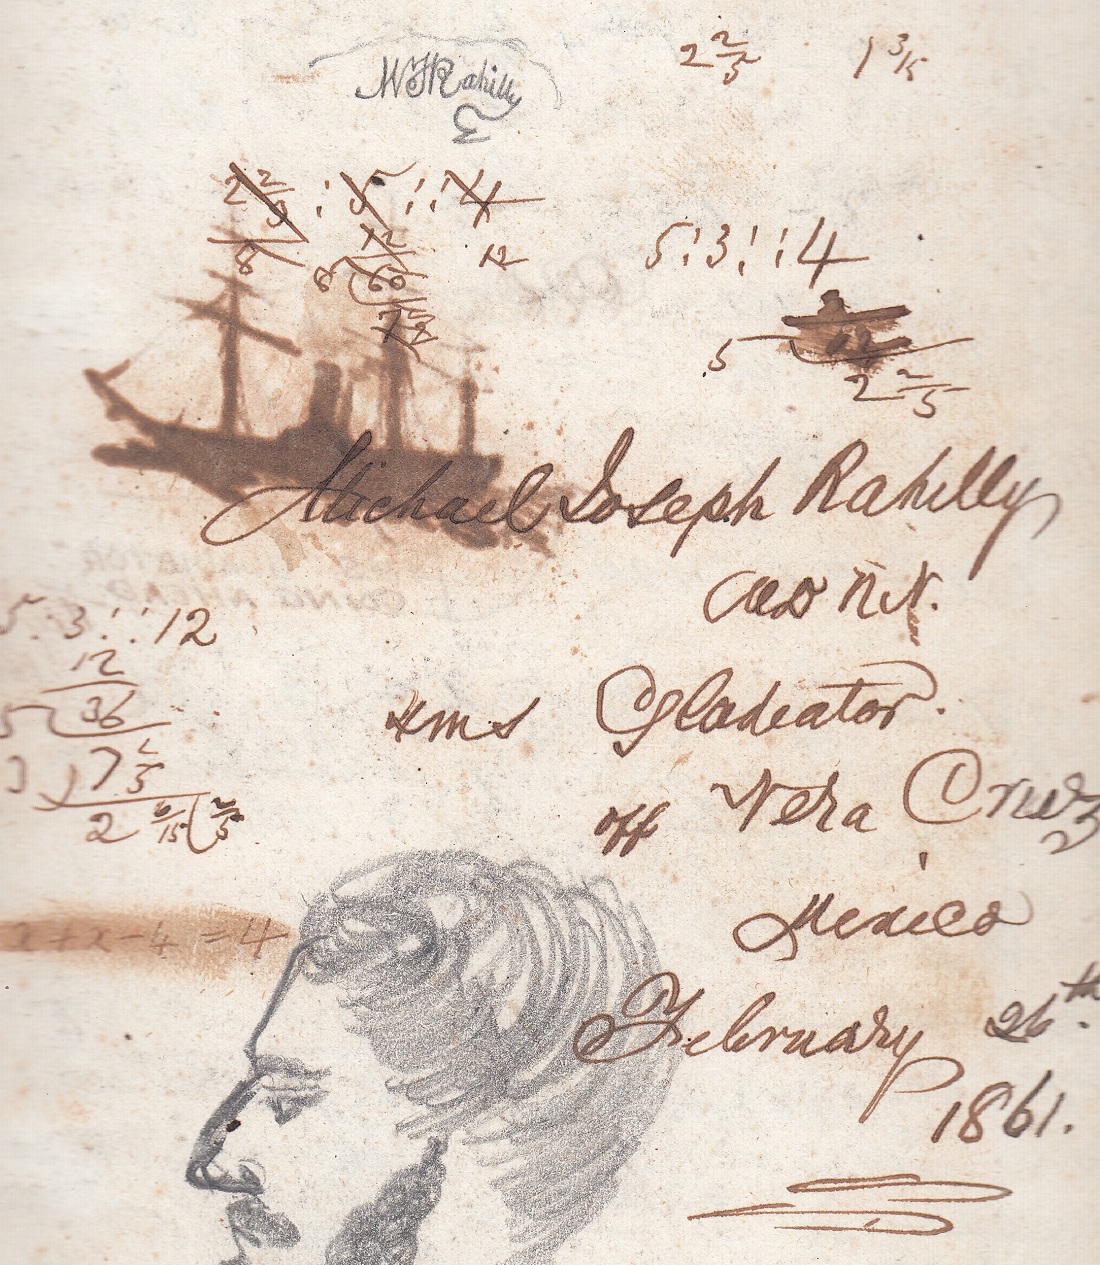 WJRahilly
2 2/5 1 3/15
2 2/5 : 5 :: 4
12 12
8 8 60
7 5/8
5:3::4
12
5
2 2/5
Michael Joseph Rahilly
R.N.
HMS Gladiator.
off Vera Cruz
Mexico
February 26th.
1861.
5:3::12
12
5 36
3 7 1/5
2 6/15 2/5
2+2-4=4